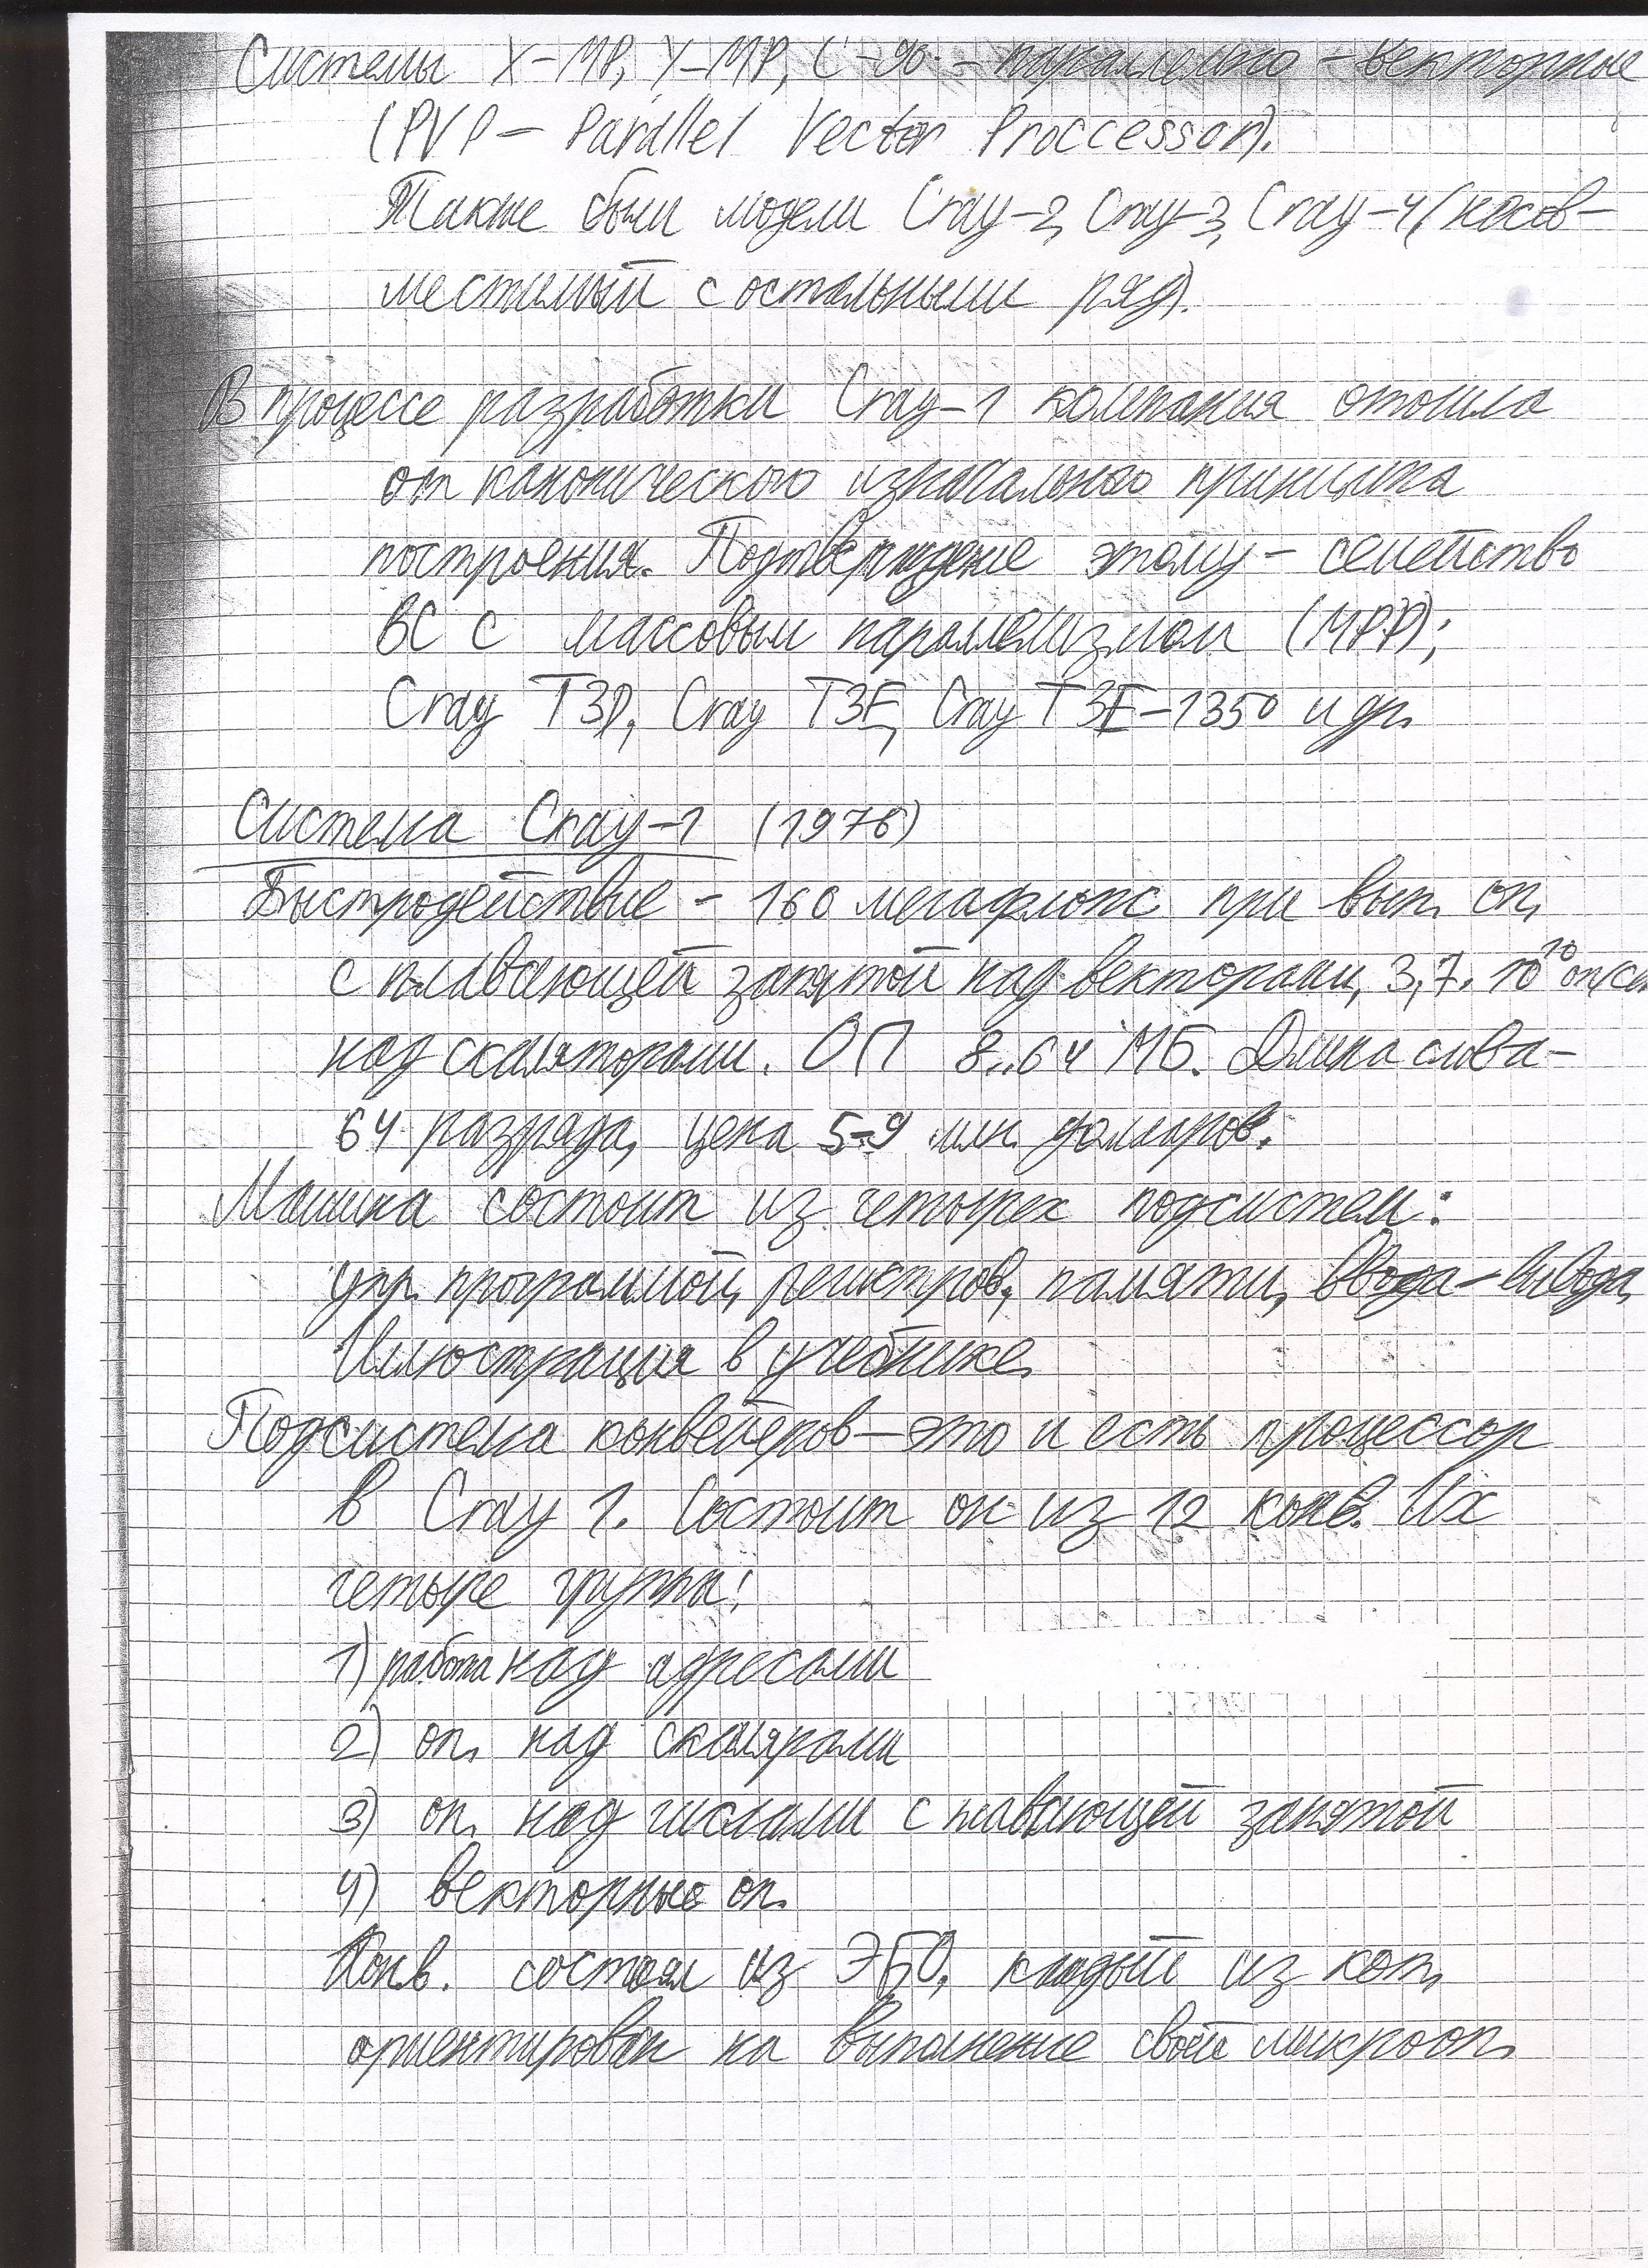 Системы X-MP, Y-MP, C-90 - параллельно-векторные
(PVP - Parallel Vector Proccessor).
Также были модели Cray-2, Cray-3, Cray-4 (несов-
местимый с остальными ряд).
В процессе разработки Cray-1 компания отошла
от канонического изначального принципа
построения. Подтверждение этому - семейство
ВС с массовым параллелизмом (MPP);
Cray T3D, Cray T3E, Cray T3E-1350 и др.
Система Cray-1 (1976)
Быстродействие - 160 мегафлопс при вып. оп.
с плавающей запятой над векторами, 3,7·10¹⁰ оп/сек
над скаляторами. ОП 8..64 МБ. Длина слова -
64 разряда, цена 5-9 млн. долларов.
Машина состоит из четырех подсистем:
упр. программой, регистров, памяти, ввода-вывода,
Иллюстрация в учебнике.
Подсистема конвейеров - это и есть процессор
в Cray 1. Состоит он из 12 конв. Их
четыре группы:
1) работа над адресами
2) оп. над скалярами
3) оп. над числами с плавающей запятой
4) векторные оп.
Конв. состоял из ЭБО, каждый из кот.
ориентирован на выполнение своей микрооп.